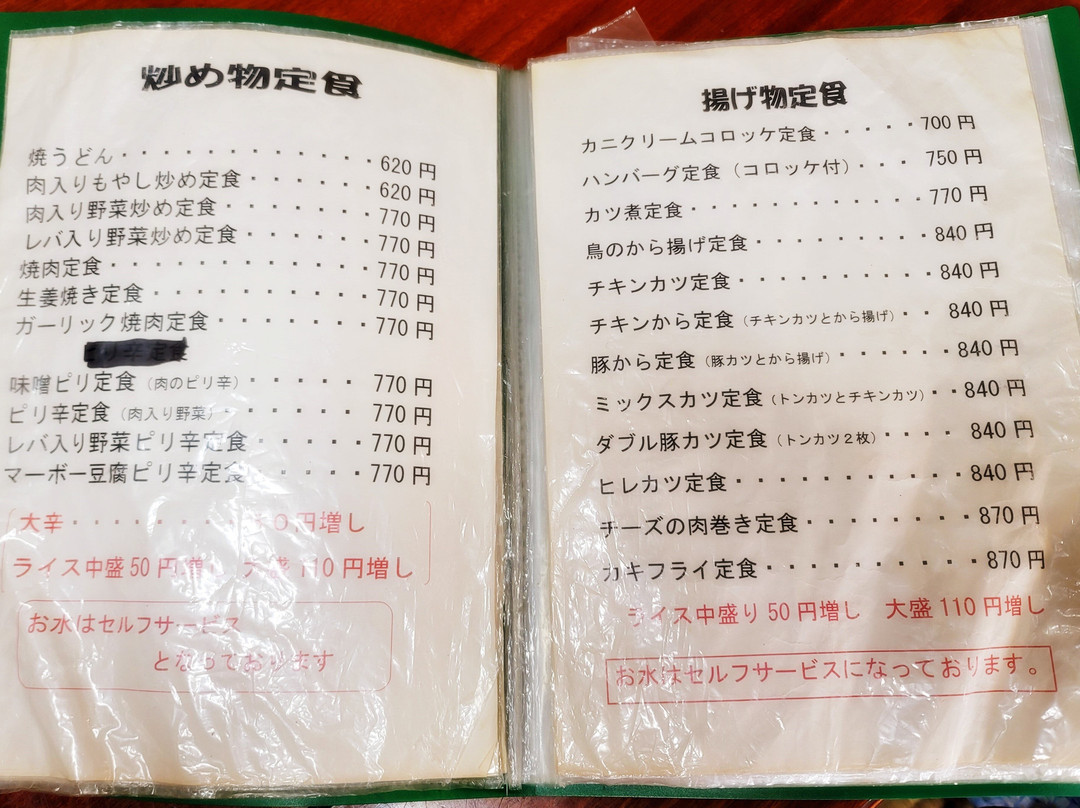 炒め物定食
焼うどん・・・・・・・・・・・・・620円
肉入りもやし炒め定食・・・・・・620円
肉入り野菜炒め定食・・・・・・・770円
レバ入り野菜炒め定食・・・・・・770円
焼肉定食・・・・・・・・・・・・770円
生姜焼き定食・・・・・・・・・・770円
ガーリック焼肉定食・・・・・・・770円
ピリ辛定食
味噌ピリ定食（肉のピリ辛）・・・・・・770円
ピリ辛定食（肉入り野菜）・・・・・・・770円
レバ入り野菜ピリ辛定食・・・・・770円
マーボー豆腐ピリ辛定食・・・・・770円
大辛・・・・・・・・ 0円増し
ライス中盛50円増し 大盛110円増し
お水はセルフサービス
となっております
揚げ物定食
カニクリームコロッケ定食・・・・・700円
ハンバーグ定食（コロッケ付）・・・750円
カツ煮定食・・・・・・・・・・・770円
鳥のから揚げ定食・・・・・・・・840円
チキンカツ定食・・・・・・・・・840円
チキンから定食（チキンカツとから揚げ）・・840円
豚から定食（豚カツとから揚げ）・・・・・・840円
ミックスカツ定食（トンカツとチキンカツ）・・840円
ダブル豚カツ定食（トンカツ２枚）・・・・840円
ヒレカツ定食・・・・・・・・・・840円
チーズの肉巻き定食・・・・・・・870円
カキフライ定食・・・・・・・・・870円
ライス中盛り50円増し 大盛110円増し
お水はセルフサービスになっております。